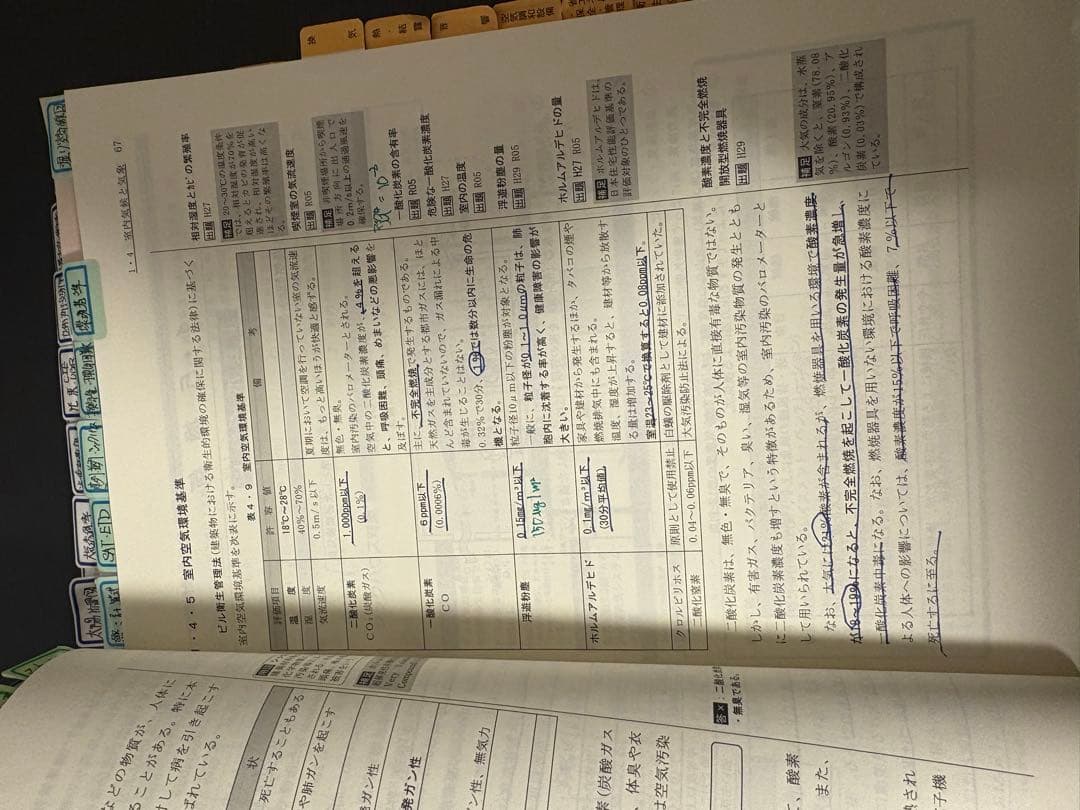 1-4 室内気候と気象 67
1・4・5 室内空気環境基準
ビル衛生管理法(建築物における衛生的環境の確保に関する法律)に基づく
室内空気環境基準を次表に示す。
表4・9 室内空気環境基準
評価項目 許容値 備考
温度 18℃~28℃
湿度 40%~70%
気流速度 0.5m/s以下 夏期において空調を行っていない室の気流速
度は、もっと高いほうが快適と感ずる。
二酸化炭素
CO₂(炭酸ガス)
1,000ppm以下
(0.1%)
無色・無臭。
室内汚染のバロメーターとされる。
空気中の二酸化炭素濃度が、4%を超える
と、呼吸困難、頭痛、めまいなどの悪影響を
及ぼす。
一酸化炭素
CO
6ppm以下
(0.0006%)
主に、不完全燃焼で発生するものである。
天然ガスを主成分とする都市ガスには、ほと
んど含まれていないので、ガス漏れによる中
毒が生じることはない。
0.32%で30分、1%では数分以内に生命の危
機となる。
浮遊粉塵
0.15mg/m³以下
150μg/m³
粒子径10μm以下の粉塵が対象となる。
一般に、粒子径が0.1~1.0μmの粒子は、肺
胞内に沈着する率が高く、健康障害の影響が
大きい。
ホルムアルデヒド
0.1mg/m³以下
(30分平均値)
家具や建材から発生するほか、タバコの煙や
燃焼排気中にも含まれる。
温度、湿度が上昇すると、建材等から放散す
る量は増加する。
室温23~25℃で換算すると0.08ppm以下。
クロルピリホス 原則として使用禁止 白蟻の駆除剤として建材に添加されていた。
二酸化窒素 0.04~0.06ppm以下 大気汚染防止法による。
二酸化炭素は、無色・無臭で、そのものが人体に直接有毒な物質ではない。
しかし、有害ガス、バクテリア、臭い、湿気等の室内汚染物質の発生ととも
に二酸化炭素濃度も増すという特徴があるため、室内汚染のバロメーターと
して用いられている。
なお、大気には21%酸素が含まれるが、燃焼器具を用いる環境で酸素濃度
が18~19%になると、不完全燃焼を起こして一酸化炭素の発生量が急増し、
一酸化炭素中毒になる。なお、燃焼器具を用いない環境における酸素濃度に
よる人体への影響については、酸素濃度が15%以下で呼吸困難、7%以下で
死亡するに至る。
相対湿度とカビの繁殖率
出題 H27
補足 20~30℃の温度条件
では、相対湿度が70%を
超えるとカビの発育が促
進され、相対湿度が高い
ほどその繁殖率は高くな
る。
喫煙室の気流速度
出題 R05
補足 非喫煙場所から喫煙
場所方向に出入口で
0.2m/s以上の通過風速を
確保する。
二酸化炭素含有率
出題 R05
危険な一酸化炭素濃度
出題 H27
室内の温度
出題 R05
浮遊粉塵の量
出題 H29 R05
ホルムアルデヒドの量
出題 H27 R05
補足 ホルムアルデヒドは、
日本住宅性能評価基準の
評価対象のひとつである。
酸素濃度と不完全燃焼
開放型燃焼器具
出題 H29
補足 大気の成分は、水蒸
気を除くと、窒素(78.08
%)、酸素(20.95%)、ア
ルゴン(0.93%)、二酸化
炭素(0.03%)で構成され
ている。
換気
熱・結露
音響
などの物質が、人体に
ることがある。特に木
けして病を引き起こす
ばれている。
状
死亡することもある
や肺ガンを起こす
発ガン性
発ガン性
ガン性、無気力
素(炭酸ガス
、体臭や衣
は空気汚染
答×:二酸化炭
・無臭である。
、酸素
また、